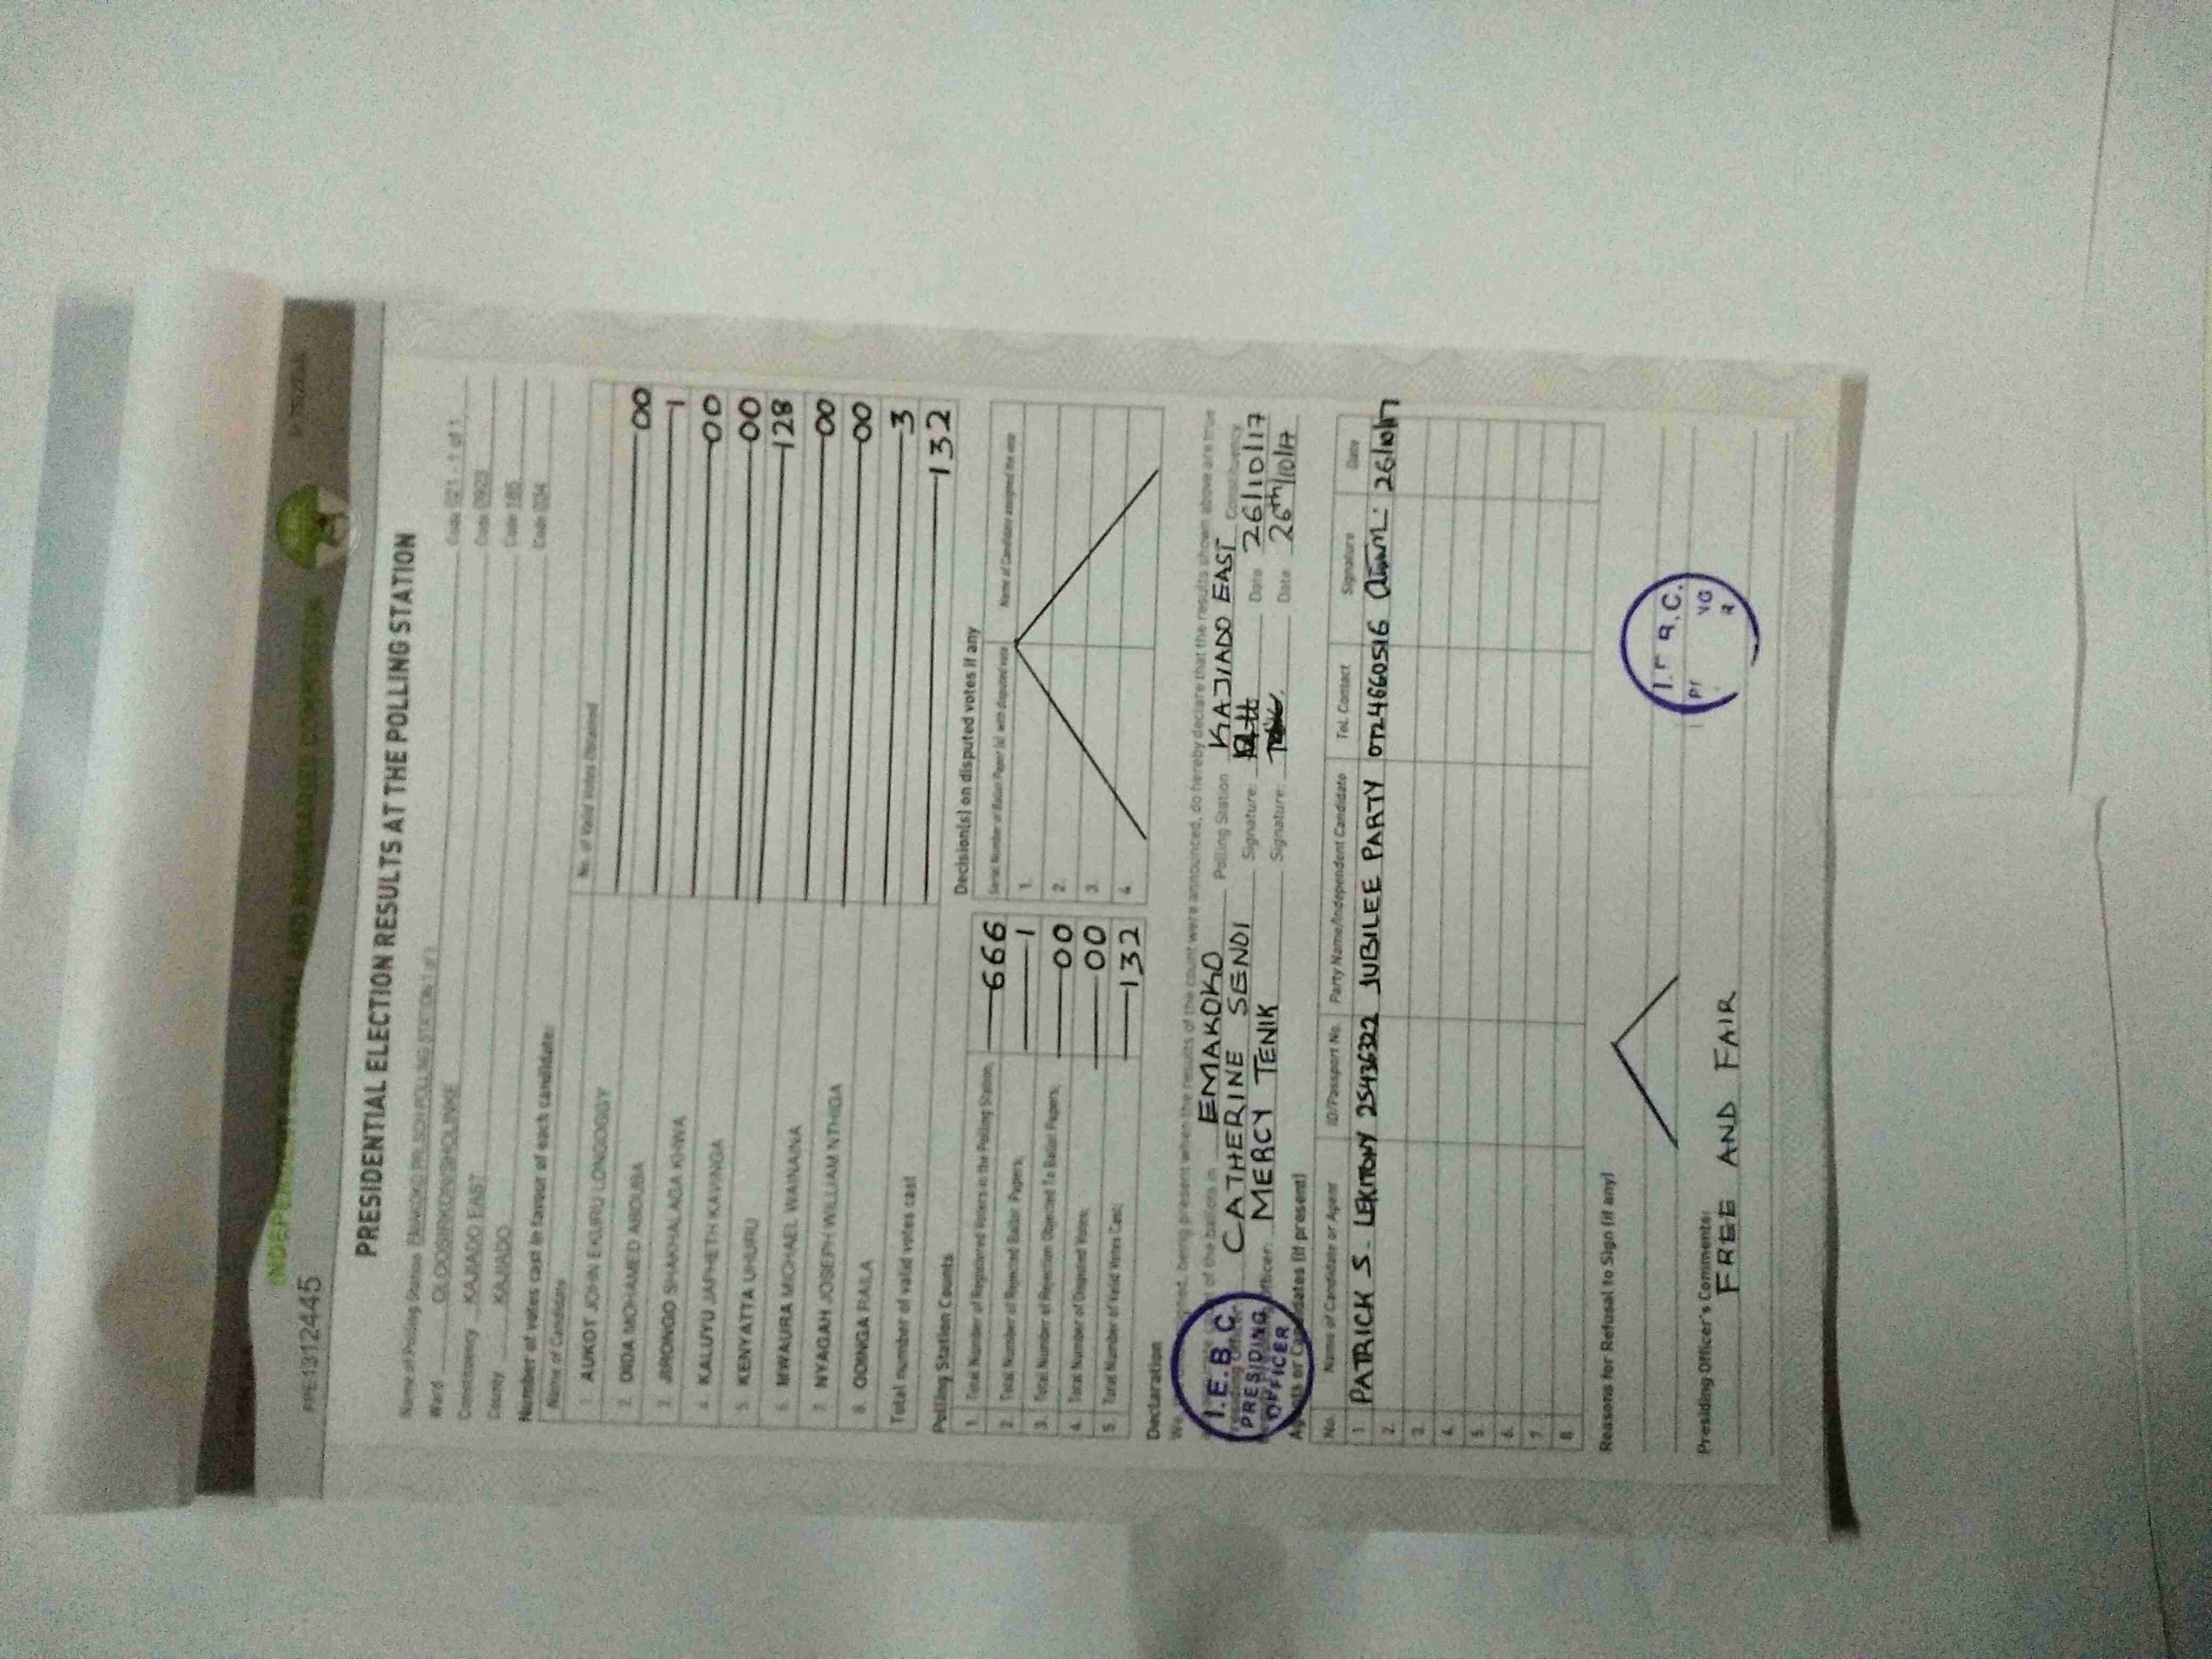 PPE1312445
INDEPENDENT
PRESIDENTIAL ELECTION RESULTS AT THE POLLING STATION
Name of Polling Station EMAKOKO PRISON POLLING STATION 1 of 1 Code 021 - 1 of 1
Ward OLOOSIRKON/SHOLINKE Code 0923
Constituency KAJIADO EAST Code 185
County KAJIADO Code 034
Number of votes cast in favour of each candidate:
Name of Candidate No. of Valid Votes Obtained
1. AUKOT JOHN EKURU LONGOGGY 00
2. DIDA MOHAMED ABDUBA 1
3. JIRONGO SHAKHALAGA KHWA 00
4. KALUYU JAPHETH KAVINGA 00
5. KENYATTA UHURU 128
6. MWAURA MICHAEL WAINAINA 00
7. NYAGAH JOSEPH WILLIAM NTHIGA 00
8. ODINGA RAILA 3
Total number of valid votes cast 132
Polling Station Counts
1. Total Number of Registered Voters in the Polling Station; 666
2. Total Number of Rejected Ballot Papers; 1
3. Total Number of Rejection Objected To Ballot Papers; 00
4. Total Number of Disputed Votes; 00
5. Total Number of Valid Votes Cast; 132
Decision(s) on disputed votes if any
Serial Number of Ballot Paper (s) with disputed vote Name of Candidate assigned the vote
1.
2.
3.
4.
Declaration
being present when the results of the count were announced, do hereby declare that the results shown above are true
of the ballots in EMAKOKO Polling Station KAJIADO EAST Constituency
CATHERINE SENDI Signature: Date 26/10/17
Officer: MERCY TENIK Signature: Date 26th/10/17
Agents or Candidates (if present)
I.E.B.C. PRESIDING OFFICER
No. Name of Candidate or Agent ID/Passport No. Party Name/Independent Candidate Tel. Contact Signature Date
1. PATRICK S. LEKITONY 25436322 JUBILEE PARTY 0724660516 26/10/17
2.
3.
4.
5.
6.
7.
8.
Reasons for Refusal to Sign (if any)
Presiding Officer's Comments:
FREE AND FAIR